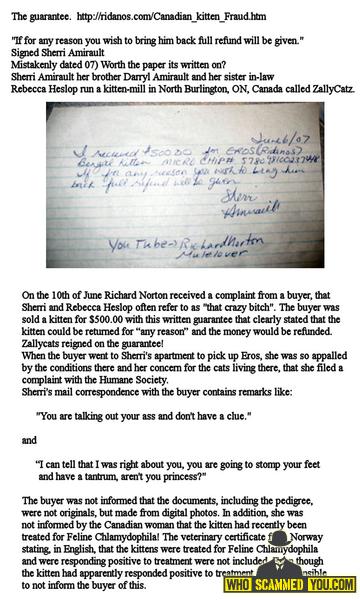 The guarantee. http://ridanos.com/Canadian_kitten_Fraud.htm
"If for any reason you wish to bring him back full refund will be given."
Signed Sherri Amirault
Mistakenly dated 07) Worth the paper its written on?
Sherri Amirault her brother Darryl Amirault and her sister in-law
Rebecca Heslop run a kitten-mill in North Burlington, ON, Canada called ZallyCatz.
June 6/07
I received $500.00 for EROS (Ridanos)
Bengal Kitten MICRO CHIP#
If for any reason you wish to bring him
back full refund will be given
Sherri
Amirault
You Tube→ Richard Norton
Mulelover
On the 10th of June Richard Norton received a complaint from a buyer, that
Sherri and Rebecca Heslop often refer to as "that crazy bitch". The buyer was
sold a kitten for $500.00 with this written guarantee that clearly stated that the
kitten could be returned for “any reason” and the money would be refunded.
Zallycats reigned on the guarantee!
When the buyer went to Sherri's apartment to pick up Eros, she was so appalled
by the conditions there and her concern for the cats living there, that she filed a
complaint with the Humane Society.
Sherri's mail correspondence with the buyer contains remarks like:
"You are talking out your ass and don't have a clue."
and
“I can tell that I was right about you, you are going to stomp your feet
and have a tantrum, aren't you princess?"
The buyer was not informed that the documents, including the pedigree,
were not originals, but made from digital photos. In addition, she was
not informed by the Canadian woman that the kitten had recently been
treated for Feline Chlamydophila! The veterinary certificate Norway
stating, in English, that the kittens were treated for Feline Chlamydophila
and were responding positive to treatment were not included though
the kitten had apparently responded positive to treatment
to not inform the buyer of this.
WHO SCAMMED YOU.COM